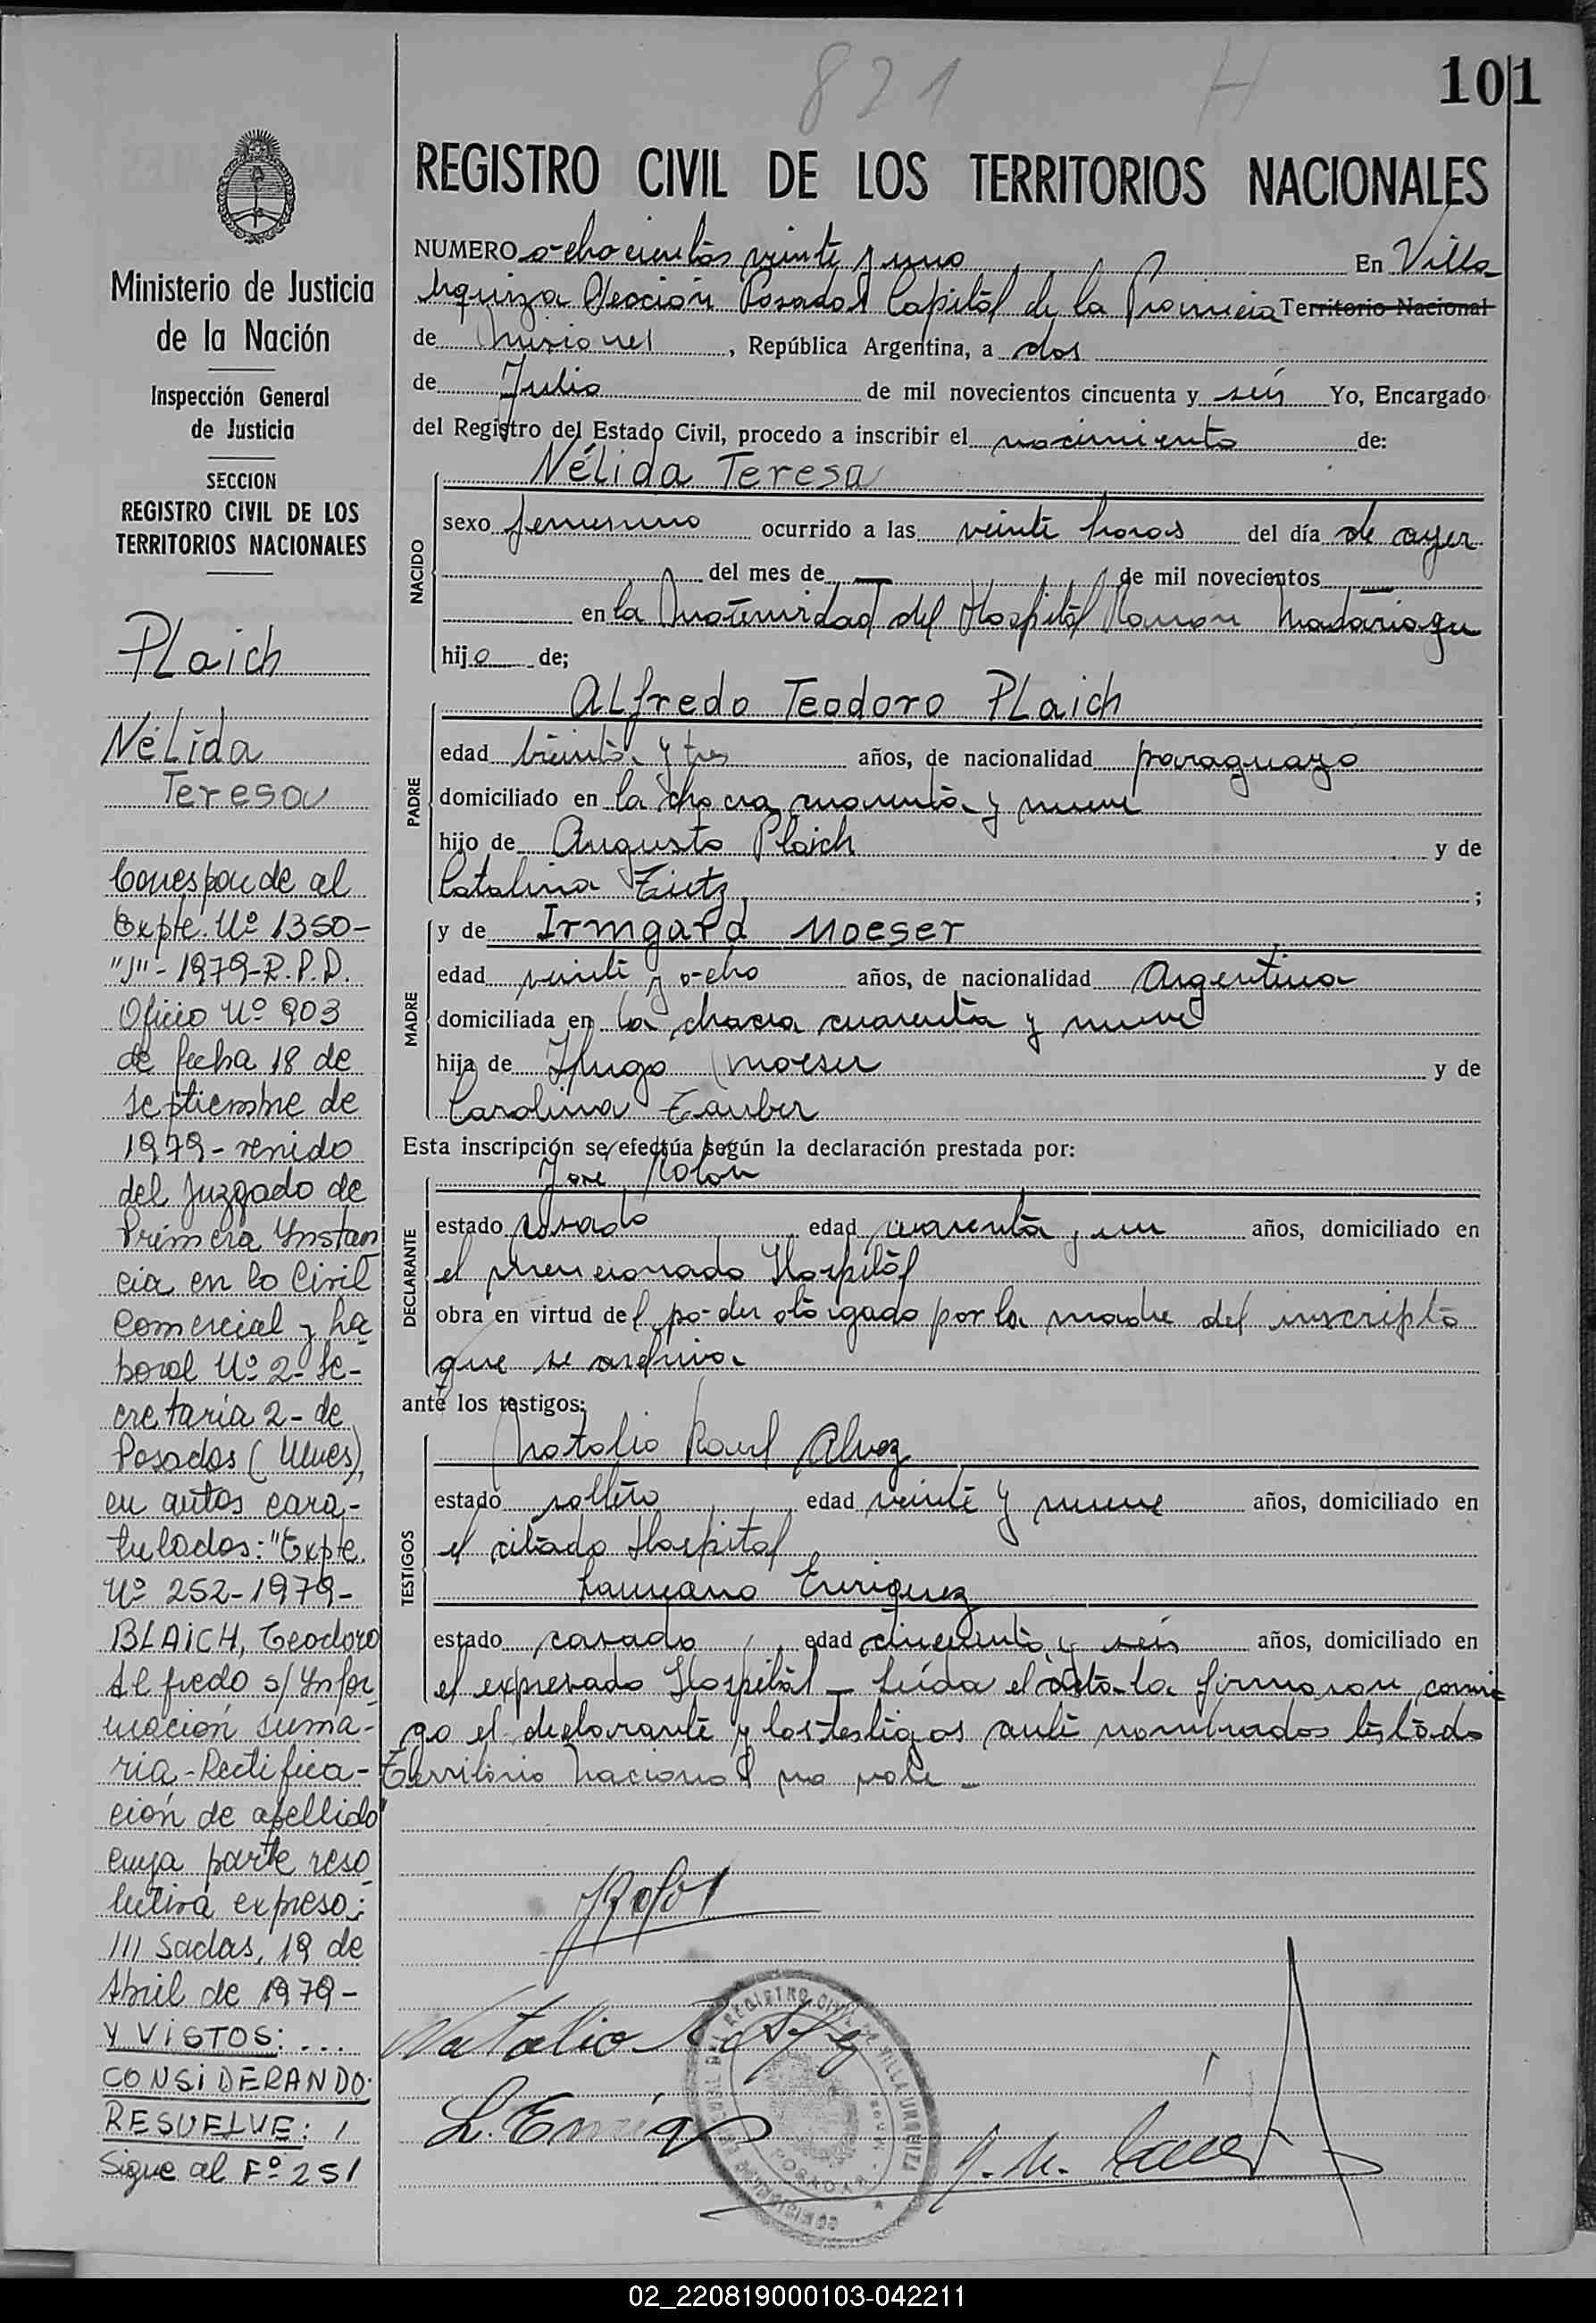 821 H
101
REGISTRO CIVIL DE LOS TERRITORIOS NACIONALES
NUMERO ochocientos veinte y uno En Villa
Urquiza Sección Posadas Capital de la Provincia Territorio Nacional
de Misiones, República Argentina, a dos
de Julio de mil novecientos cincuenta y seis Yo, Encargado
del Registro del Estado Civil, procedo a inscribir el nacimiento de:
NACIDO
Nélida Teresa
sexo femenino ocurrido a las veinte horas del día de ayer
del mes de — de mil novecientos —
en la Maternidad del Hospital Ramon Madariaga
hija de;
PADRE
ALfredo Teodoro PLaich
edad treinta y tres años, de nacionalidad paraguayo
domiciliado en la chacra cuarenta y nueve
hijo de Augusto Plaich y de
Catalina Tietz ;
MADRE
y de Irmgard Moeser
edad veinte y ocho años, de nacionalidad Argentina
domiciliada en la chacra cuarenta y nueve
hija de Hugo Moeser y de
Carolina Tauber
Esta inscripción se efectúa según la declaración prestada por:
DECLARANTE
Jose Rolon
estado casado edad cuarenta y un años, domiciliado en
el mencionado Hospital
obra en virtud del poder otorgado por la madre del inscripto
que se archiva
ante los testigos:
TESTIGOS
Natalio Raul Alvez
estado soltero edad veinte y nueve años, domiciliado en
el citado Hospital
Laureano Enriquez
estado casado edad cincuenta y seis años, domiciliado en
el expresado Hospital — Leída el acta la firmaron conmi
go el declarante y los testigos ante nombrados testado
Territorio Nacional no vale -
Natalio R
L. Enriq
REGISTRO CIVIL DE VILLA URQUIZA
POSADAS
Ministerio de Justicia
de la Nación
Inspección General
de Justicia
SECCION
REGISTRO CIVIL DE LOS
TERRITORIOS NACIONALES
PLaich
NéLida
Teresa
Corresponde al
Expte. Nº 1350-
"J"- 1979-R.P.D.
Oficio Nº 903
de fecha 18 de
septiembre de
1979- venido
del Juzgado de
Primera Instan
cia en lo Civil
Comercial y La
boral Nº 2- Se-
cretaría 2- de
Posadas (Mnes),
en autos cara-
tulados: "Expte.
Nº 252-1979-
BLAICH, Teodoro
Alfredo s/ Infor
mación suma-
ria - Rectifica-
ción de apellido"
cuya parte reso
lutiva expresa:
///sadas, 19 de
Abril de 1979-
Y VISTOS: ...
CONSIDERANDO.
RESUELVE: 1
Sigue al Fº 251
02_220819000103-042211